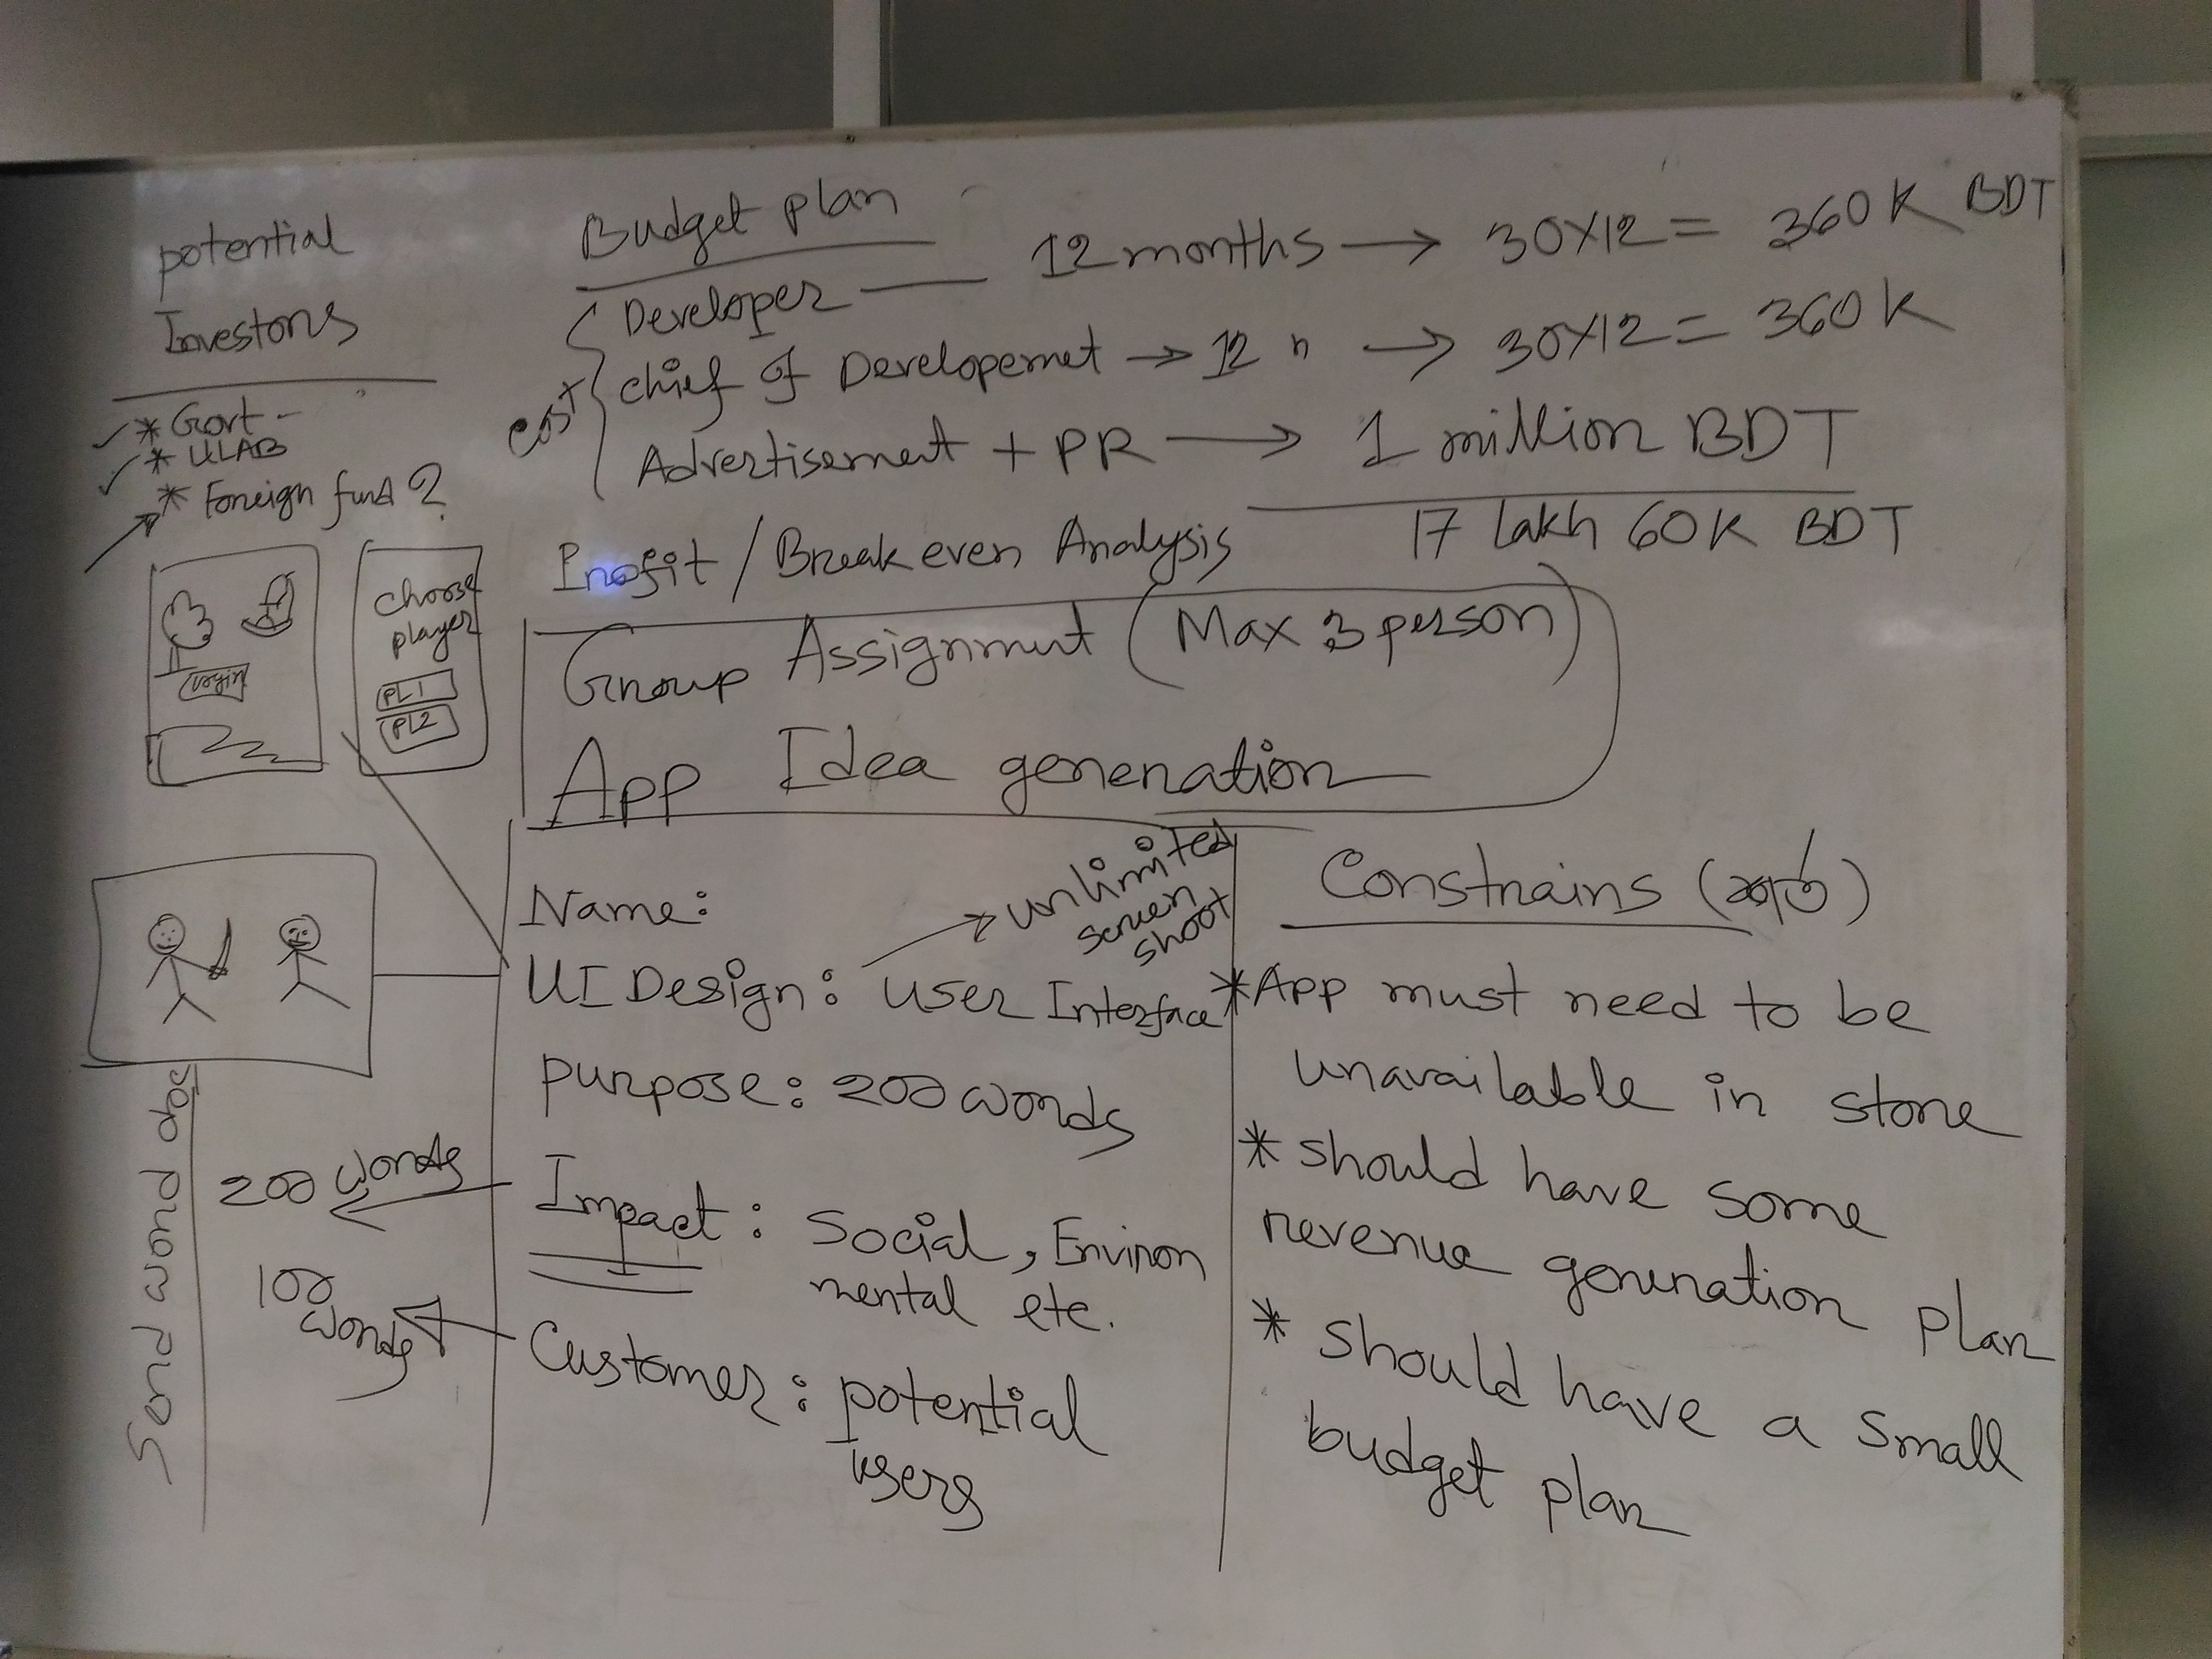 potential
Investors
* Govt -
* ULAB
* Foreign fund ?
Budget plan
Developer — 12 months → 30X12 = 360K BDT
cost
Chief of Developemet → 12 " → 30X12 = 360K
Advertisement + PR → 1 million BDT
17 lakh 60K BDT
Profit / Break even Analysis
Group Assignment (Max 3 person)
App Idea generation
Login
choose
player
PL1
PL2
Name:
UI Design: User Interface
unlimited
screen
shoot
purpose: 200 words
Impact: Social, Environ
mental etc.
200 words
Customer: potential
users
100
words
Send word doc
Constrains (শর্ত)
*App must need to be
unavailable in store
* should have some
revenue generation plan
* should have a small
budget plan